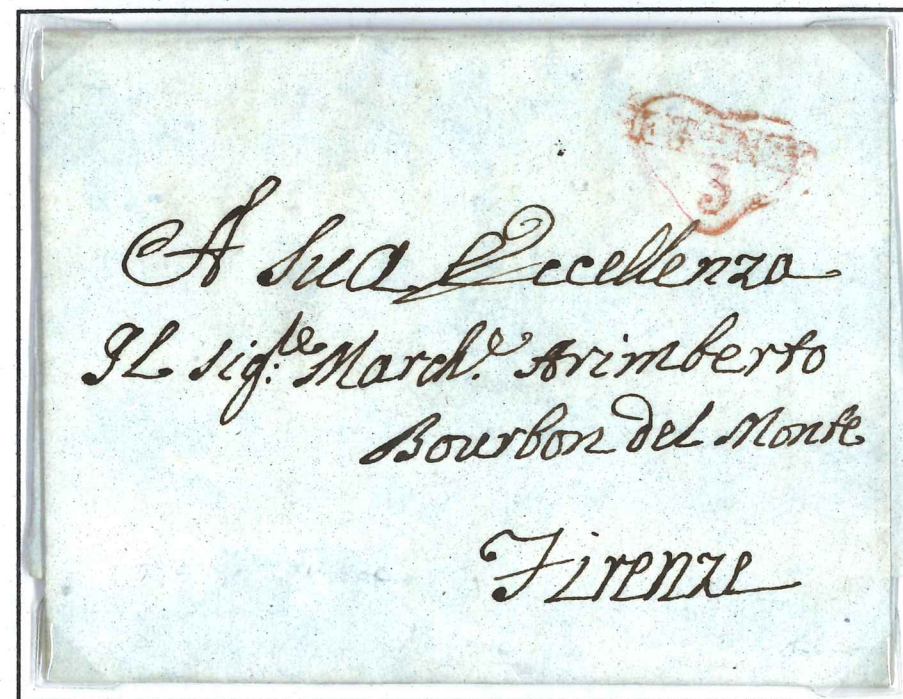 3
A Sua Eccellenza
Il Sig.re March.e Arimberto
Bourbon del Monte
Firenze